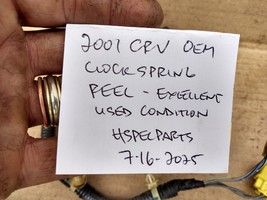 2001 CRV OEM
CLOCKSPRING
REEL - EXCELLENT
USED CONDITION
HSPECPARTS
7-16-2025